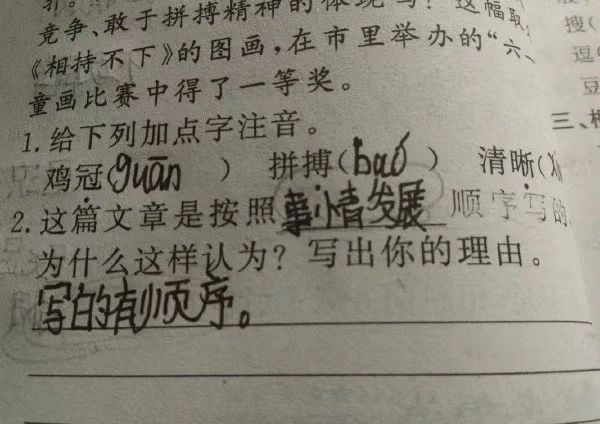 竞争、敢于拼搏精神的体现吗?这幅取
《相持不下》的图画,在市里举办的“六一
童画比赛中得了一等奖。
1.给下列加点字注音。
鸡冠(guān ) 拼搏(baó ) 清晰(
2.这篇文章是按照事情发展顺序写的
为什么这样认为?写出你的理由。
写的有顺序。
搜(
逗(
豆
三、